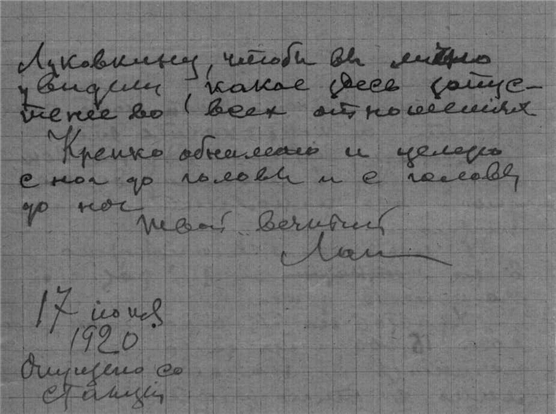 Луковкину, чтобы вы лично
увидели, какое здесь запус-
тение во всех отношениях
Крепко обнимаю и целую
с ног до головы и с головы
до ног
Твой вечный
17 июня
1920
Опущено со
станции